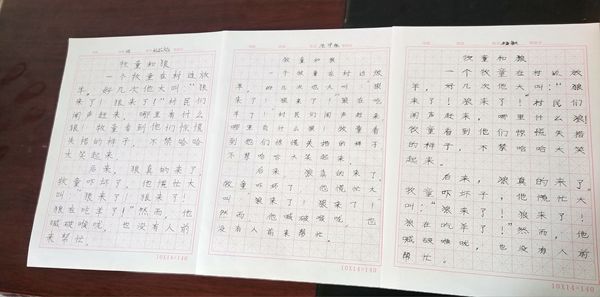 牧童和狼
一个牧童在村边放
羊。好几次他大叫:“狼
来了!狼来了!”村民们
闻声赶来,哪里有什么
狼!牧童看到他们惊慌
失措的样子,不禁哈哈
大笑起来。
后来,狼真的来了,
牧童吓坏了,他慌忙大
叫:“狼来了!狼来了!
狼在吃羊了!”然而,他
喊破喉咙,也没有人前
来帮忙。
10X14=140
牧童和狼
一个牧童在村边放
羊,好几次他大叫:“狼
来了!狼来了!狼在吃
羊了!村民们闻声赶来,
哪里有什么狼!牧童看
到他们惊慌失措的样子,
不禁哈哈大笑起来。
后来,狼真的来了,
牧童吓坏了,他慌忙大
叫:狼来了!狼来了!”
然而,他喊破喉咙,也
没有人前来帮忙。
10X14=140
牧童和狼
一个牧童在村边放
羊,好几次他大叫:“狼
来了!狼来了!”村民们
闻声赶来,哪里什么狼!
牧童看到他们惊慌失措
的样子,不禁哈哈大笑
起来。
后来,狼真的来了,
牧童吓坏了,他慌忙大
叫:“狼来了!狼来了!
狼在吃羊了!”然而,他
喊破喉咙,也没有人前
帮忙。
10X14=140